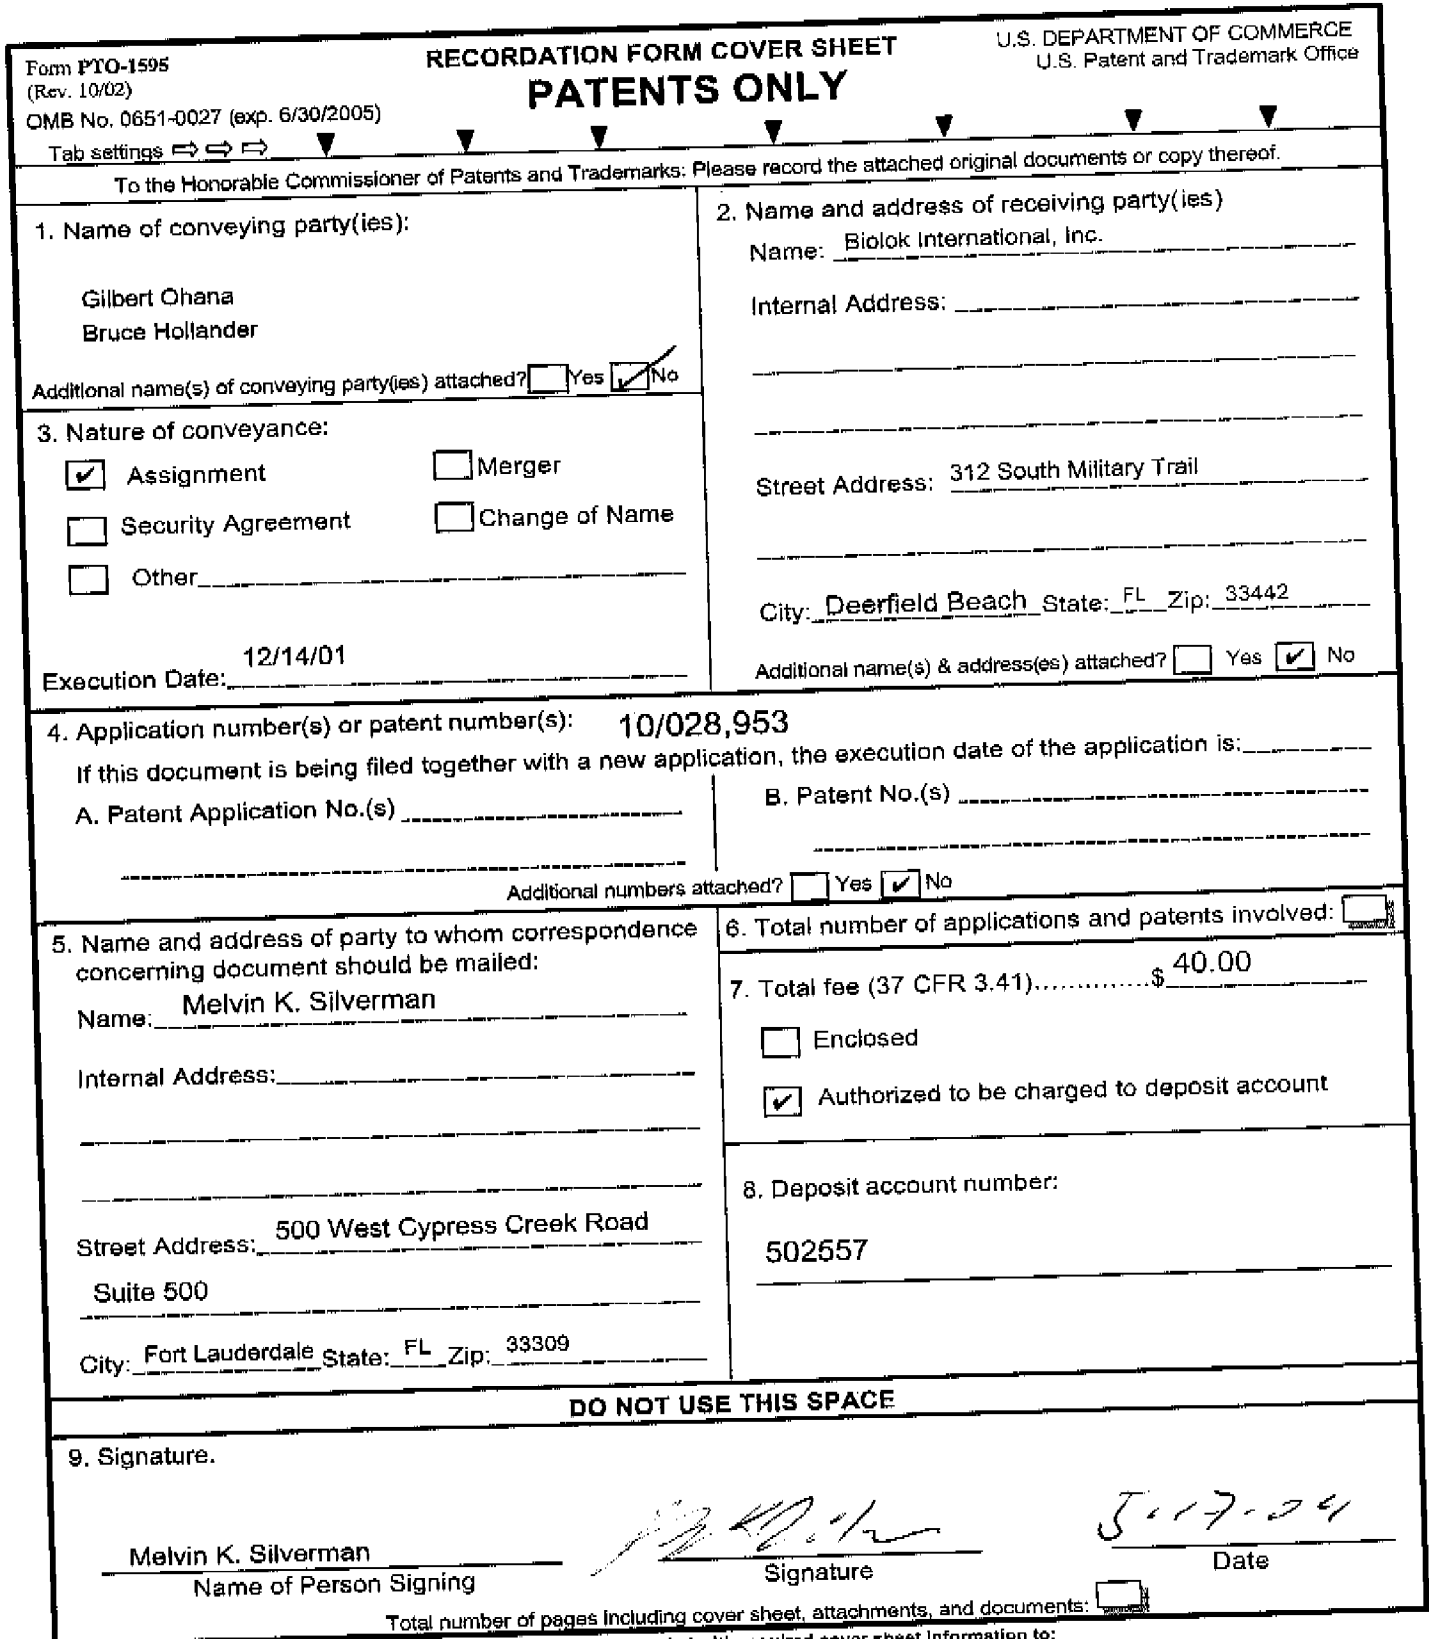 Form PTO-1595
(Rev. 10/02)
OMB No. 0651-0027 (exp. 6/30/2005)
Tab settings ⇨ ⇨ ⇨
RECORDATION FORM COVER SHEET
PATENTS ONLY
U.S. DEPARTMENT OF COMMERCE
U.S. Patent and Trademark Office
To the Honorable Commissioner of Patents and Trademarks: Please record the attached original documents or copy thereof.
1. Name of conveying party(ies):
Gilbert Ohana
Bruce Hollander
Additional name(s) of conveying party(ies) attached? Yes ✓ No
2. Name and address of receiving party(ies)
Name: Biolok International, Inc.
Internal Address:
Street Address: 312 South Military Trail
City: Deerfield Beach State: FL Zip: 33442
Additional name(s) & address(es) attached? Yes ✓ No
3. Nature of conveyance:
✓ Assignment Merger
Security Agreement Change of Name
Other
Execution Date: 12/14/01
4. Application number(s) or patent number(s): 10/028,953
If this document is being filed together with a new application, the execution date of the application is:
A. Patent Application No.(s)
B. Patent No.(s)
Additional numbers attached? Yes ✓ No
5. Name and address of party to whom correspondence
concerning document should be mailed:
Name: Melvin K. Silverman
Internal Address:
Street Address: 500 West Cypress Creek Road
Suite 500
City: Fort Lauderdale State: FL Zip: 33309
6. Total number of applications and patents involved:
7. Total fee (37 CFR 3.41)..............$ 40.00
Enclosed
✓ Authorized to be charged to deposit account
8. Deposit account number:
502557
DO NOT USE THIS SPACE
9. Signature.
Melvin K. Silverman
5-17-04
Name of Person Signing
Signature
Date
Total number of pages including cover sheet, attachments, and documents:
cover sheet information to: